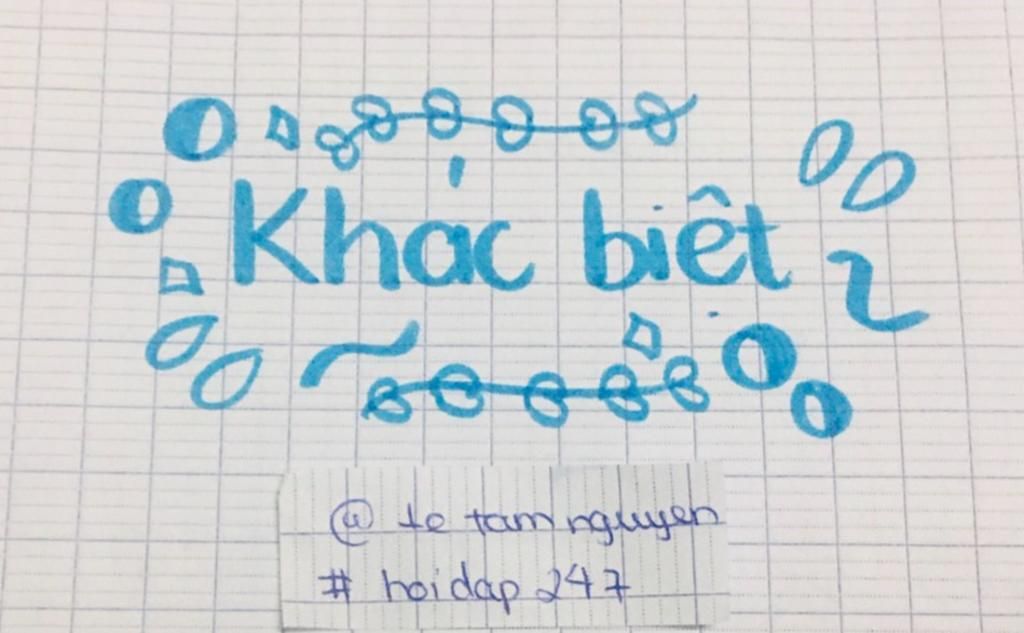 Khác biệt
@ le tam nguyen
# hoidap 247